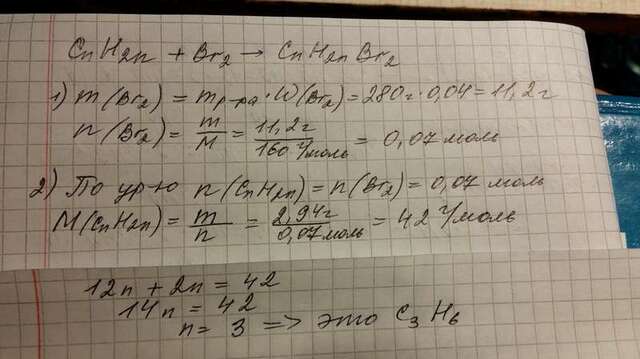 CnH2n + Br2 → CnH2nBr2
1) m(Br2) = mр-ра · W(Br2) = 280г · 0,04 = 11,2г
n(Br2) = m/M = 11,2г/160 г/моль = 0,07 моль
2) По ур-ю n(CnH2n) = n(Br2) = 0,07 моль
M(CnH2n) = m/n = 2,94г/0,07моль = 42 г/моль
12n + 2n = 42
14n = 42
n = 3 => это C3H6